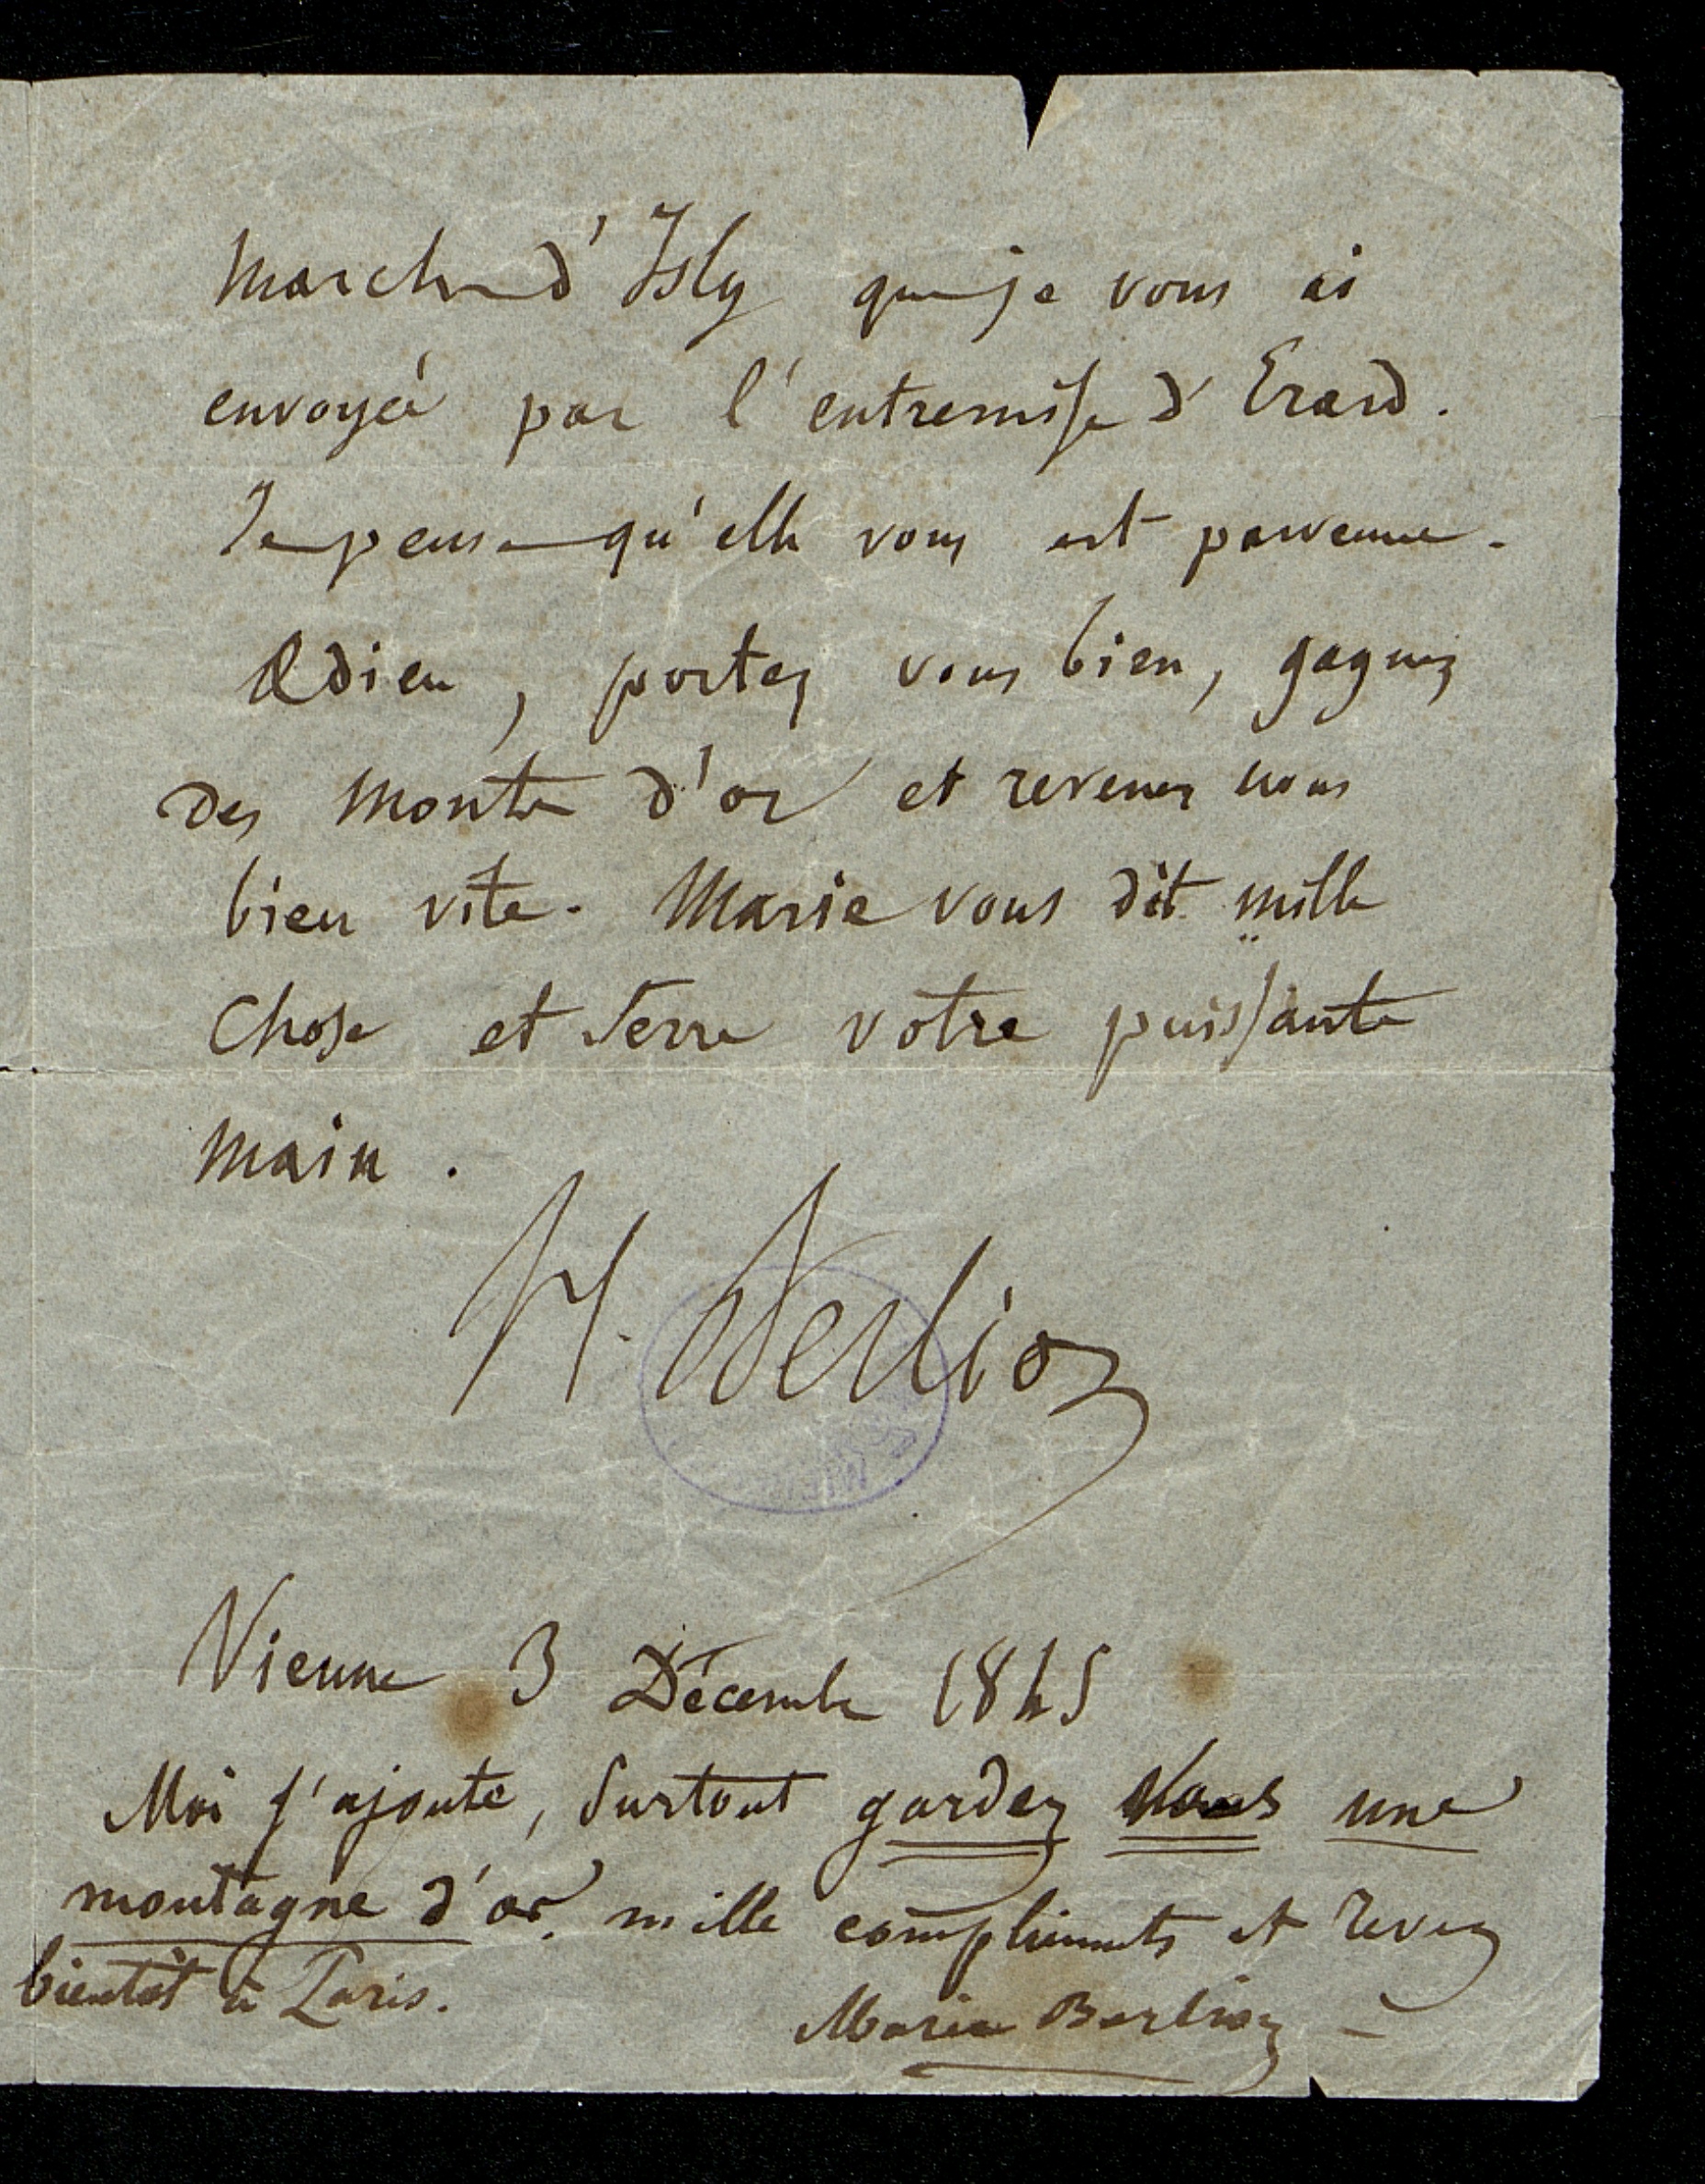 marche d'Isly que je vous ai
envoyée par l'entremise d'Erard.
Je pense qu'elle vous est parvenue.
Adieu, portez vous bien, gagnez
des monts d'or et revenez nous
bien vite. Marie vous dit mille
choses et serre votre puissante
main.
H. Berlioz
Vienne 3 Décembre 1845
Moi j'ajoute, surtout gardez vous une
montagne d'or. mille compliments et revenez
bientôt à Paris.
Marie Berlioz